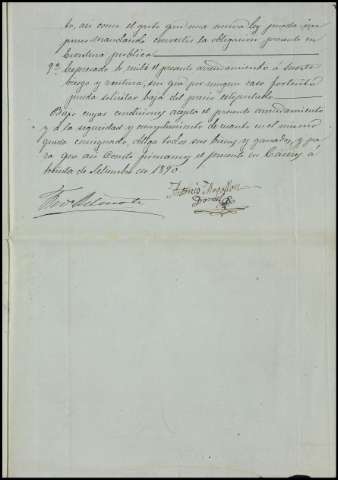 to, así como el gasto que una nueva ley pueda im-
poner mandando convertir la obligacion presente en
Escritura pública.
9ª Expresado se cede el presente arrendamiento á suerte
riesgo y ventura, sin que por ningun caso fortuito
pueda solicitar baja del precio estipulado.
Bajo cuyas condiciones acepta el presente arrendamiento
y á la seguridad y cumplimiento de cuanto en el mismo
queda consignado, obliga todos sus bienes y ganados, y pa-
ra que así conste firmamos el presente en Cáceres á
treinta de Setiembre de 1890
Antonio